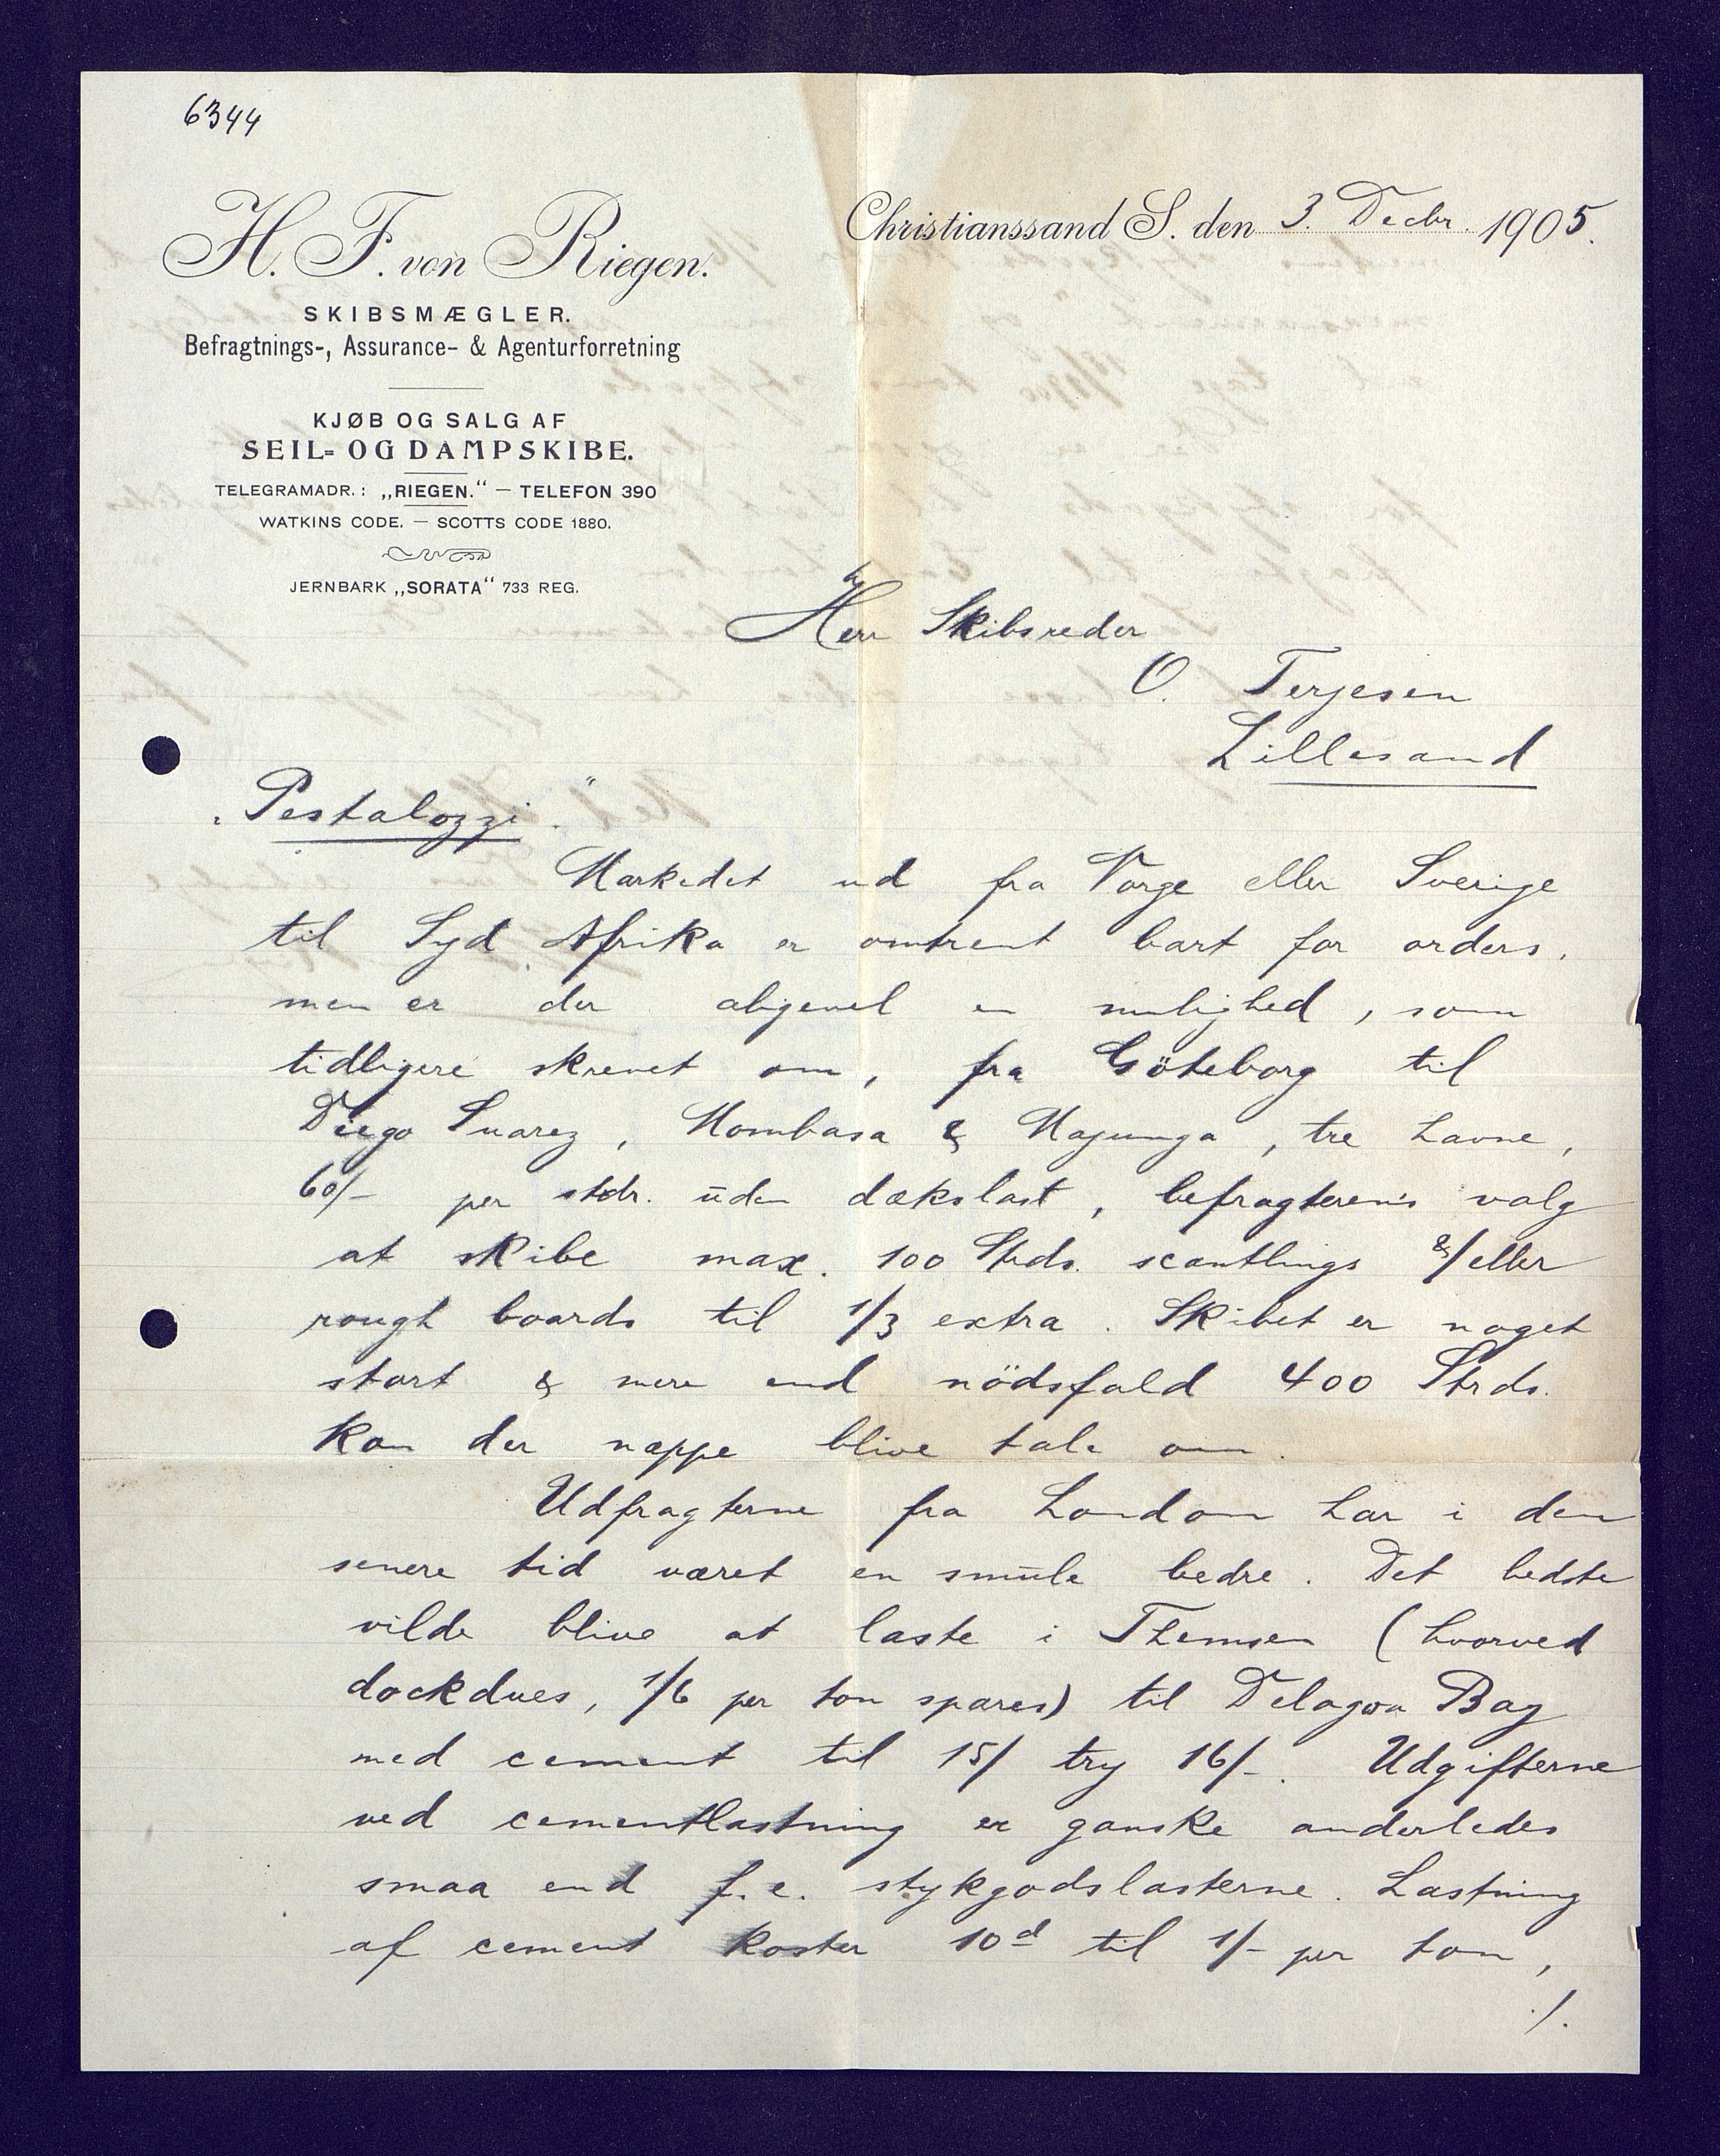 6344
H. F. von Riegen.
SKIBSMÆGLER.
Befragtnings-, Assurance- & Agenturforretning
KJØB OG SALG AF
SEIL- OG DAMPSKIBE.
TELEGRAMADR.: „RIEGEN.“ — TELEFON 390
WATKINS CODE. — SCOTTS CODE 1880.
JERNBARK „SORATA“ 733 REG.
Christianssand S. den 3. Decbr. 1905.
Herr Skibsreder
O. Terjesen
Lillesand
„Pestalozzi“.
Markedet ud fra Norge eller Sverige
til Syd Afrika er omtrent bart for orders,
men er der aligevel en mulighed, som
tidligere skrevet om, fra Göteborg til
Diego Suarez, Mombasa & Majunga, tre havne,
60/- per stdr. uden dækslast, befragterens valg
at skibe max. 100 Stds. scantlings &/eller
rough boards til 1/3 extra. Skibet er noget
stort & mere end nödsfald 400 Strds.
kan der neppe blive tale om.
Udfragterne fra London har i den
senere tid været en smule bedre. Det bedste
vilde blive at laste i Themsen (hvorved
dockdues, 1/6 per ton spares) til Delagoa Bay
med cement til 15/ try 16/-. Udgifterne
ved cementlastning er ganske anderledes
smaa end f.e. stykgodslasterne. Lastning
af cement koster 10d til 1/- per ton,
./.